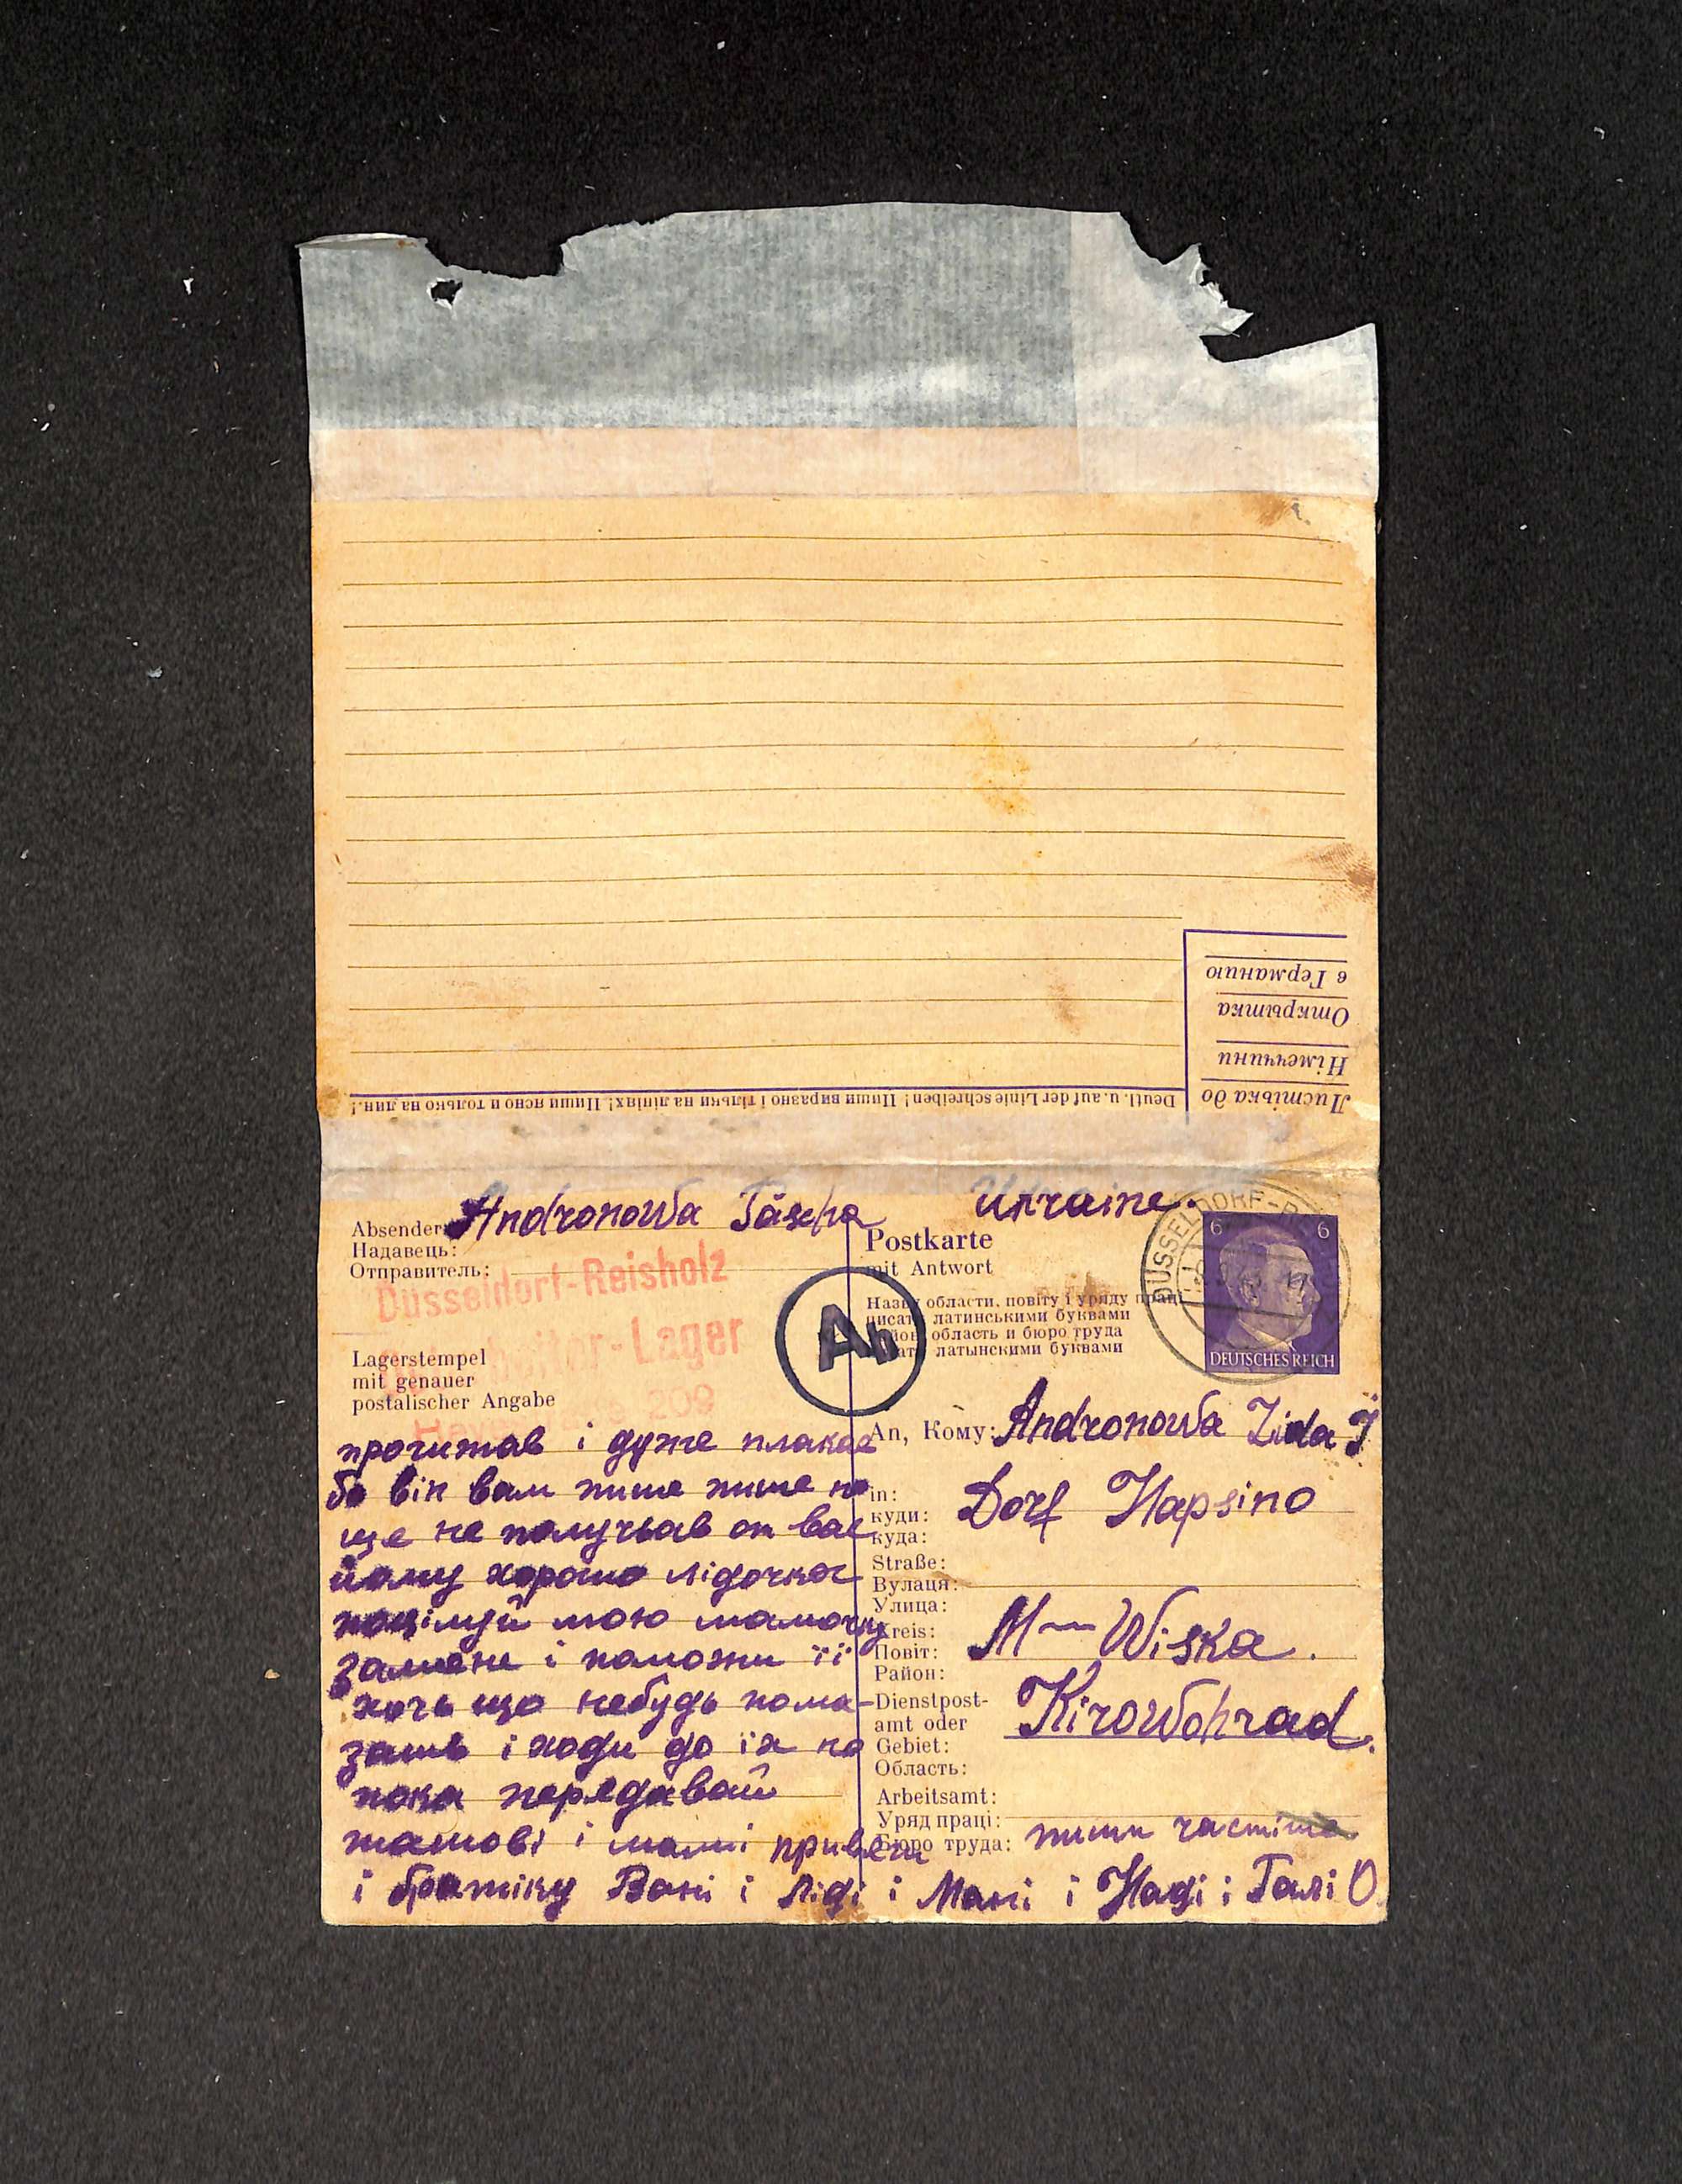 Листівка до
Німеччини
Открытка
в Германию
Deutl. u. auf der Linie schreiben! Пиши виразно і тільки на лініях! Пиши ясно и только на лин.!
Andronowa Tascha
Absender:
Надавець:
Отправитель:
Düsseldorf-Reisholz
-Lager
209
Lagerstempel
mit genauer
postalischer Angabe
прочитав і дуже плакав
бо він вам пише пише но
ще не получав от вас
йому хорошо лідочка
поцілуй мою мамочку
замене і поможи її
хоть що небудь пома-
зать і ходи до їх по
пока передавай
татові і мамі привети
і братіку Вані і Ліді і Мані і Наді і Галі О
Ukraine.
Postkarte
mit Antwort
DÜSSELDORF-
6 6
DEUTSCHES REICH
Ab
Назву области, повіту і уряду праці
писати латинськими буквами
Район область и бюро труда
латынскими буквами
An, Кому: Andronowa Lida J
in:
куди:
куда:
Dorf Hapsino
Straße:
Вулаця:
Улица:
Kreis:
Повіт:
Район:
M— Wiska.
Dienstpost-
amt oder
Gebiet:
Область:
Kirowohrad.
Arbeitsamt:
Уряд праці:
Бюро труда:
пиши частіше